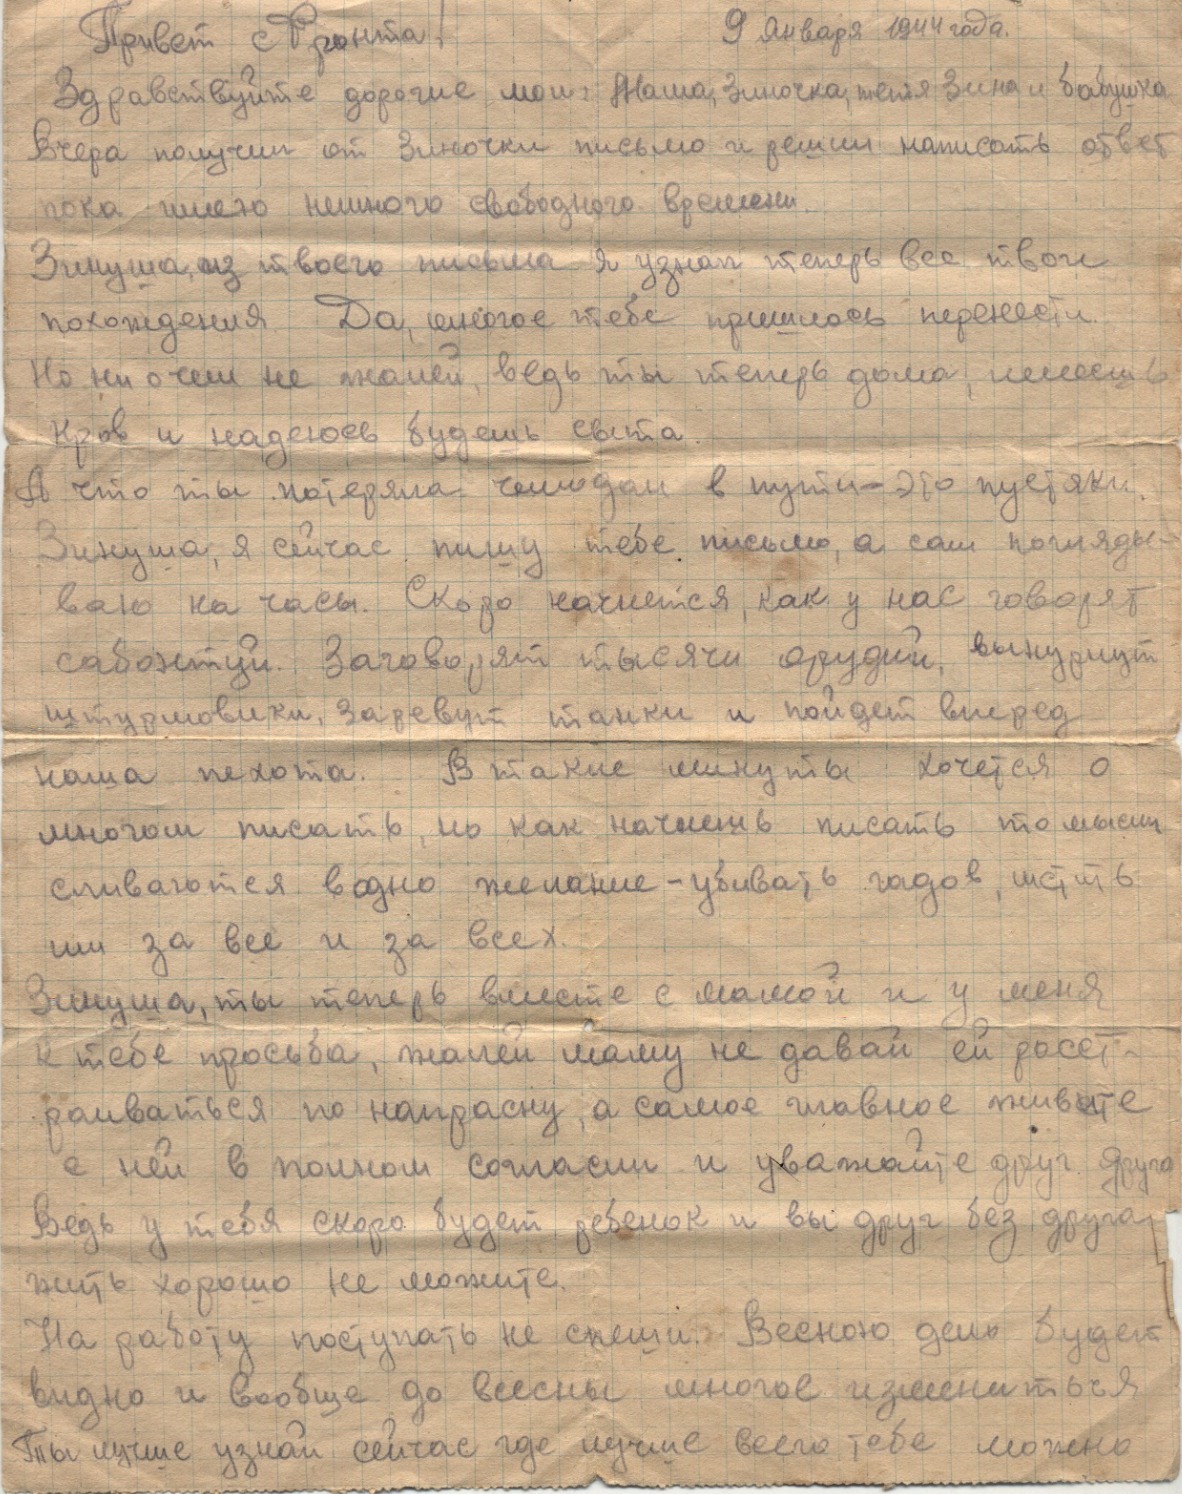 Привет с Фронта!
9 Января 1944 года.
Здравствуйте дорогие мои: Мама, Зиночка, тетя Зина и бабушка
Вчера получил от Зиночки письмо и решил написать ответ
пока имею немного свободного времени.
Зинуша, из твоего письма я узнал теперь все твои
похождения Да, многое тебе пришлось перенести.
Но ни о чем не жалей, ведь ты теперь дома, имеешь
кров и надеюсь будешь сыта.
А что ты потеряла чемодан в пути – это пустяки.
Зинуша, я сейчас пишу тебе письмо, а сам погляды-
ваю на часы. Скоро начнется, как у нас говорят
сабонтуй. Заговорят тысячи орудий, вынурнут
штурмовики, заревут танки и пойдет вперед
наша пехота. В такие минуты хочется о
многом писать, но как начнешь писать то мысли
сливаются водно желание – убивать гадов, мстить
им за все и за всех.
Зинуша, ты теперь вместе с мамой и у меня
к тебе просьба, жалей маму не давай ей расст-
раиваться по напрасну, а самое главное живите
с ней в полном согласии и уважайте друг друга
Ведь у тебя скоро будет ребенок и вы друг без друга
жить хорошо не можите.
На работу поступать не спеши. Весною дело будет
видно и вообще до весны многое измениться
Ты лучше узнай сейчас где лучше всего тебе можно